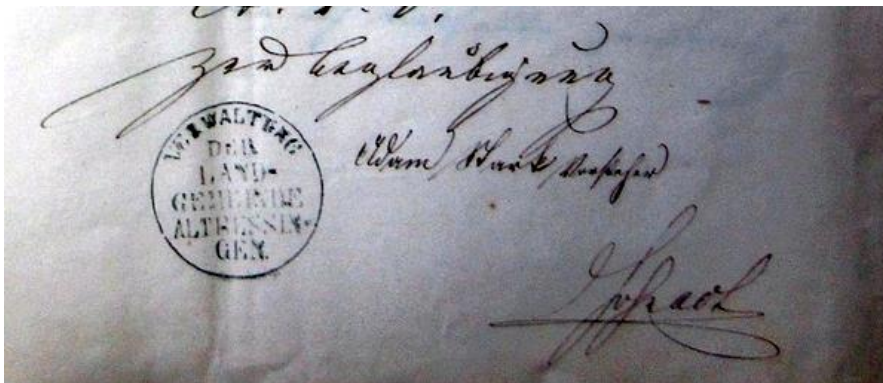 Zur Beglaubigung
VERWALTUNG
DER
LAND-
GEMEINDE
ALTBESSIN-
GEN.
Adam Stark Vorsteher